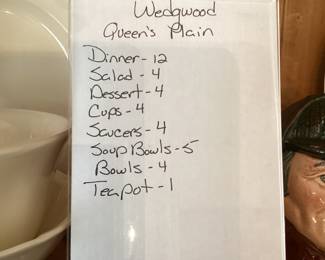 Wedgwood
Queen's Plain
Dinner - 12
Salad - 4
Dessert - 4
Cups - 4
Saucers - 4
Soup Bowls - 5
Bowls - 4
Teapot - 1